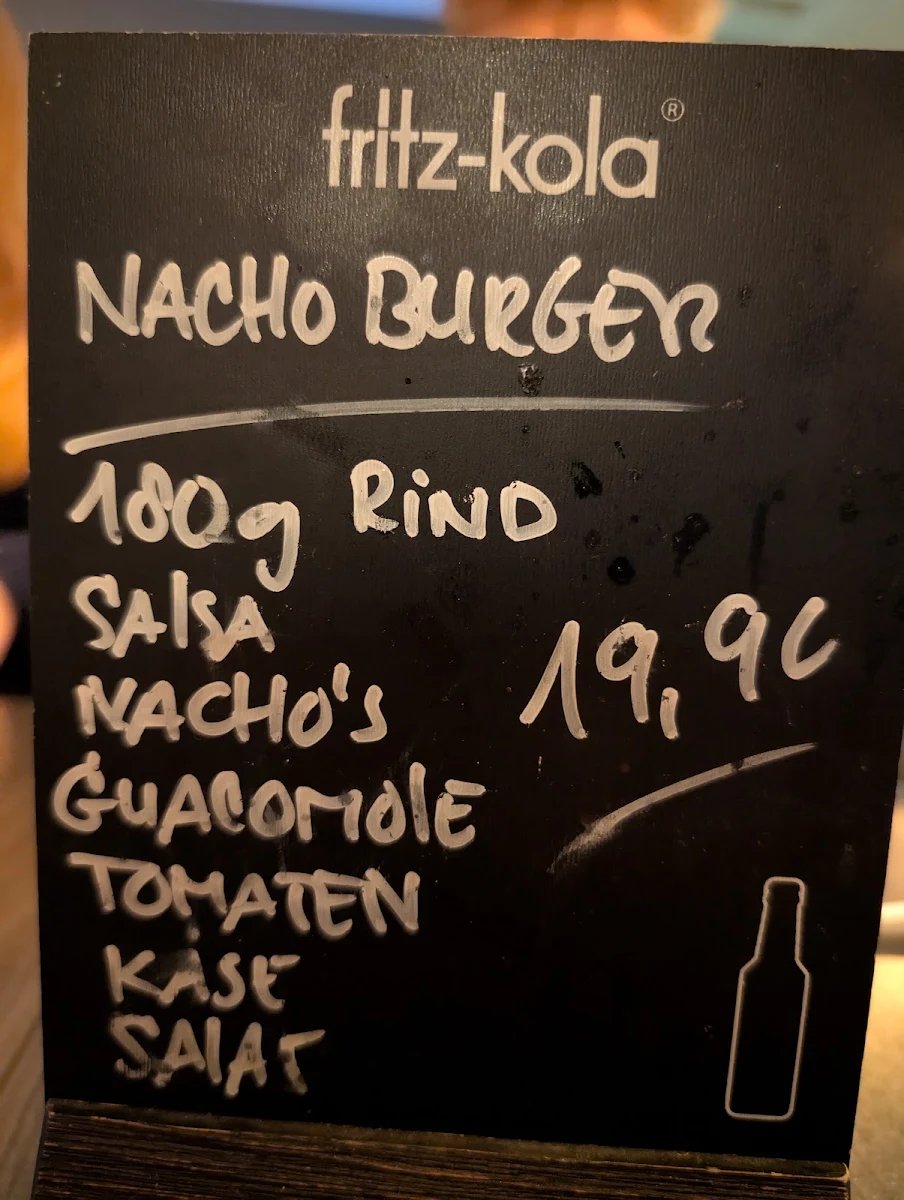 fritz-kola®
NACHO BURGER
180g RIND
SALSA
19,90
NACHO'S
GUACOMOLE
TOMATEN
KASE
SALAT